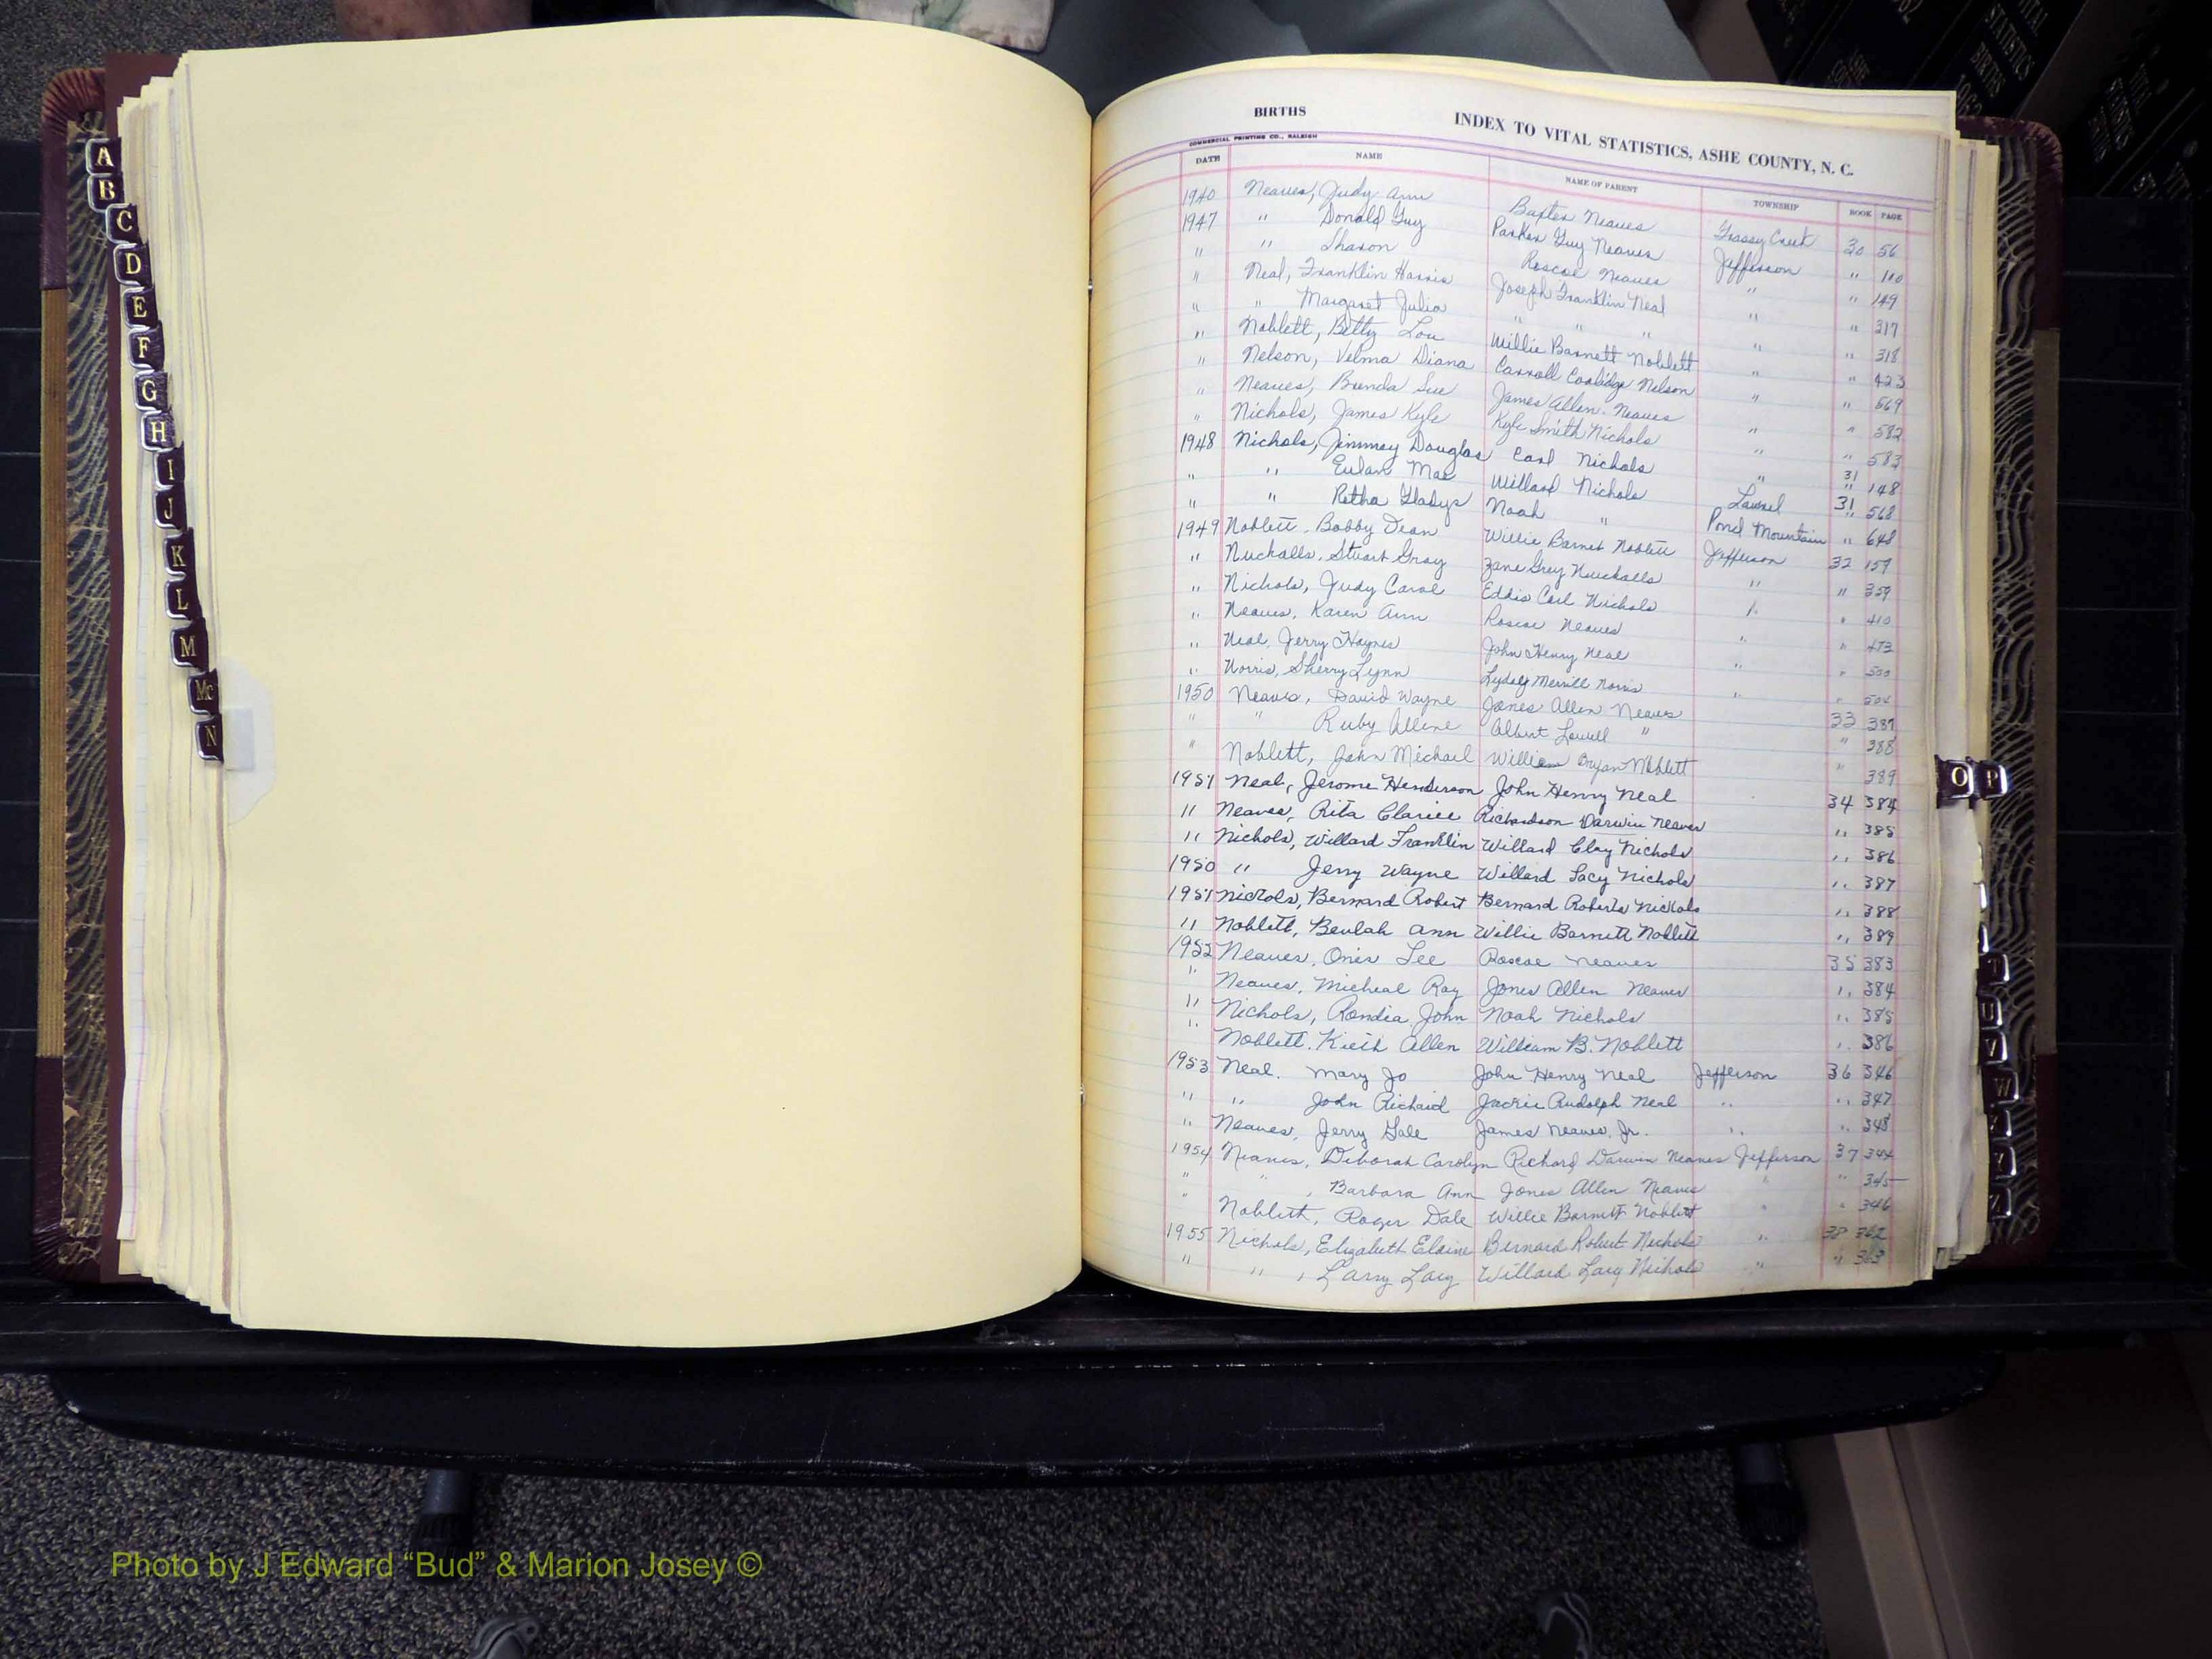 BIRTHS INDEX TO VITAL STATISTICS, ASHE COUNTY, N. C.
COMMERCIAL PRINTING CO., RALEIGH
DATE NAME NAME OF PARENT TOWNSHIP BOOK PAGE
1940 Neaves, Judy Ann Baxter Neaves Grassy Creek 30 56
1947 " Donald Guy Parker Guy Neaves Jefferson " 110
" " Sharon Roscoe Neaves " " 149
" Neal, Franklin Harris Joseph Franklin Neal " " 317
" " Margaret Julia " " " " " 318
" Noblett, Betty Lou Willie Barnett Noblett " " 423
" Nelson, Velma Diana Carroll Coolidge Nelson " " 569
" Neaves, Brenda Sue James Allen Neaves " " 582
" Nichols, James Kyle Kyle Smith Nichols " " 583
1948 Nichols, Jimmey Douglas Carl Nichols " 31 148
" " Eulan Mae Willard Nichols Laurel 31 568
" " Retha Gladys Noah " Pond Mountain " 648
1949 Noblett, Bobby Dean Willie Barnet Noblett Jefferson 32 159
" Nuckalls, Stuart Gray Zane Grey Nuckalls " " 359
" Nichols, Judy Carol Eddie Carl Nichols " " 410
" Neaves, Karen Ann Roscoe Neaves " " 473
" Neal, Jerry Haynes John Henry Neal " " 500
" Norris, Sherry Lynn Merrill Norris " "
1950 Neaves, David Wayne Jones Allen Neaves 33 387
" " Ruby Allene Albert Lowell " " 388
" Noblett, John Michael William Bryan Noblett " 389
1951 Neal, Jerome Henderson John Henry Neal 34 384
" Neaves, Rita Clarice Richardson Darwin Neaves " 385
" Nichols, Willard Franklin Willard Clay Nichols " 386
1950 " Jerry Wayne Willard Lacy Nichols " 387
1951 Nichols, Bernard Robert Bernard Roberts Nichols " 388
" Noblett, Beulah Ann Willie Barnett Noblett " 389
1952 Neaves, Onis Lee Roscoe Neaves 35 383
" Neaves, Micheal Ray Jones Allen Neaves " 384
" Nichols, Rondia John Noah Nichols " 385
" Noblett, Kieth Allen William B. Noblett " 386
1953 Neal, Mary Jo John Henry Neal Jefferson 36 346
" " John Richard Jackie Rudolph Neal " " 347
" Neaves, Jerry Gale James Neaves, Jr. " " 348
1954 Neaves, Deborah Carolyn Richard Darwin Neaves Jefferson 37 344
" " , Barbara Ann Jones Allen Neaves " " 345
" Noblett, Roger Dale Willie Barnett Noblett " " 346
1955 Nichols, Elizabeth Elaine Bernard Robert Nichols " 38 362
" " , Larry Lacy Willard Lacy Nichols " " 363
A
B
C
D
E
F
G
H
I
J
K
L
M
Mc
N
O P
T
U
V
W
Y
Z
VITAL STATISTICS BIRTHS 1963
ASHE
Photo by J Edward “Bud” & Marion Josey ©